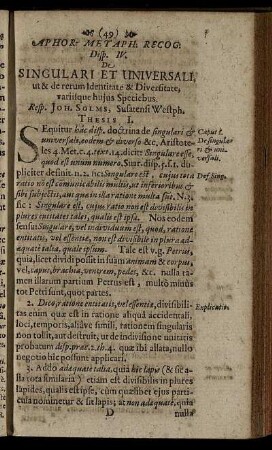 (49)
APHOR: METAPH. RECOG:
Disp. IV.
De
SINGULARI ET UNIVERSALI,
ut & de rerum Identitate & Diversitate,
variisque hujus Speciebus.
Resp. JOH. SOLMS, Susatensi Westph.
THESIS I.
SEquitur hâc disp. doctrina de singulari &
universali, eodem & diverso &c, Aristote-
les 4 Met. c. 4. text. 14. dicit: Singulare esse,
quod est unum numero. Suar. disp. 5. s. 1. du-
pliciter definit. n. 2. sic: Singulare est, cujus tota
ratio nõ est communicabilis multis, ut inferioribus &
sibi subjectis, aut quæ in ista ratione multa sint. N. 3.
sic: Singulare est, cujus ratio non est divisibilis in
plures entitates tales, qualis est ipsa. Nos eodem
sensu: Singulare, vel individuum est, quod, ratione
entitatis, vel essentiæ, non est divisibile in plura ad-
æquate talia, quale ipsum. Tale est v.g. Petrus,
quia, licet dividi possit in suam animam & corpus,
vel, caput, brachia, ventrem, pedes, &c. nulla ta-
men illarum partium Petrus est, multò minùs
tot Petri sunt, quot partes.
2. Dico, ratione entitatis, vel essentiæ, divisibili-
tas enim quæ est in ratione aliquâ accidentali,
loci, temporis, aliisve simili, rationem singularis
non tollit, aut destruit, ut de indivisione unitatis
probatum disp. præc. 2. th. 4. quæ ibi allata, nullo
negotio hic possunt applicari.
3. Addo adæquatè talia, quia hic lapis (& sic a-
lia tota similaria) etiam est divisibilis in plures
lapides, qualis est ipse, cùm quælibet ejus parti-
cula nominetur & sit lapis; at non adæquatè, quia
D nulla
Caput 1.
De singular
ri & uni-
versali.
Def. Sing.
Explicatio.